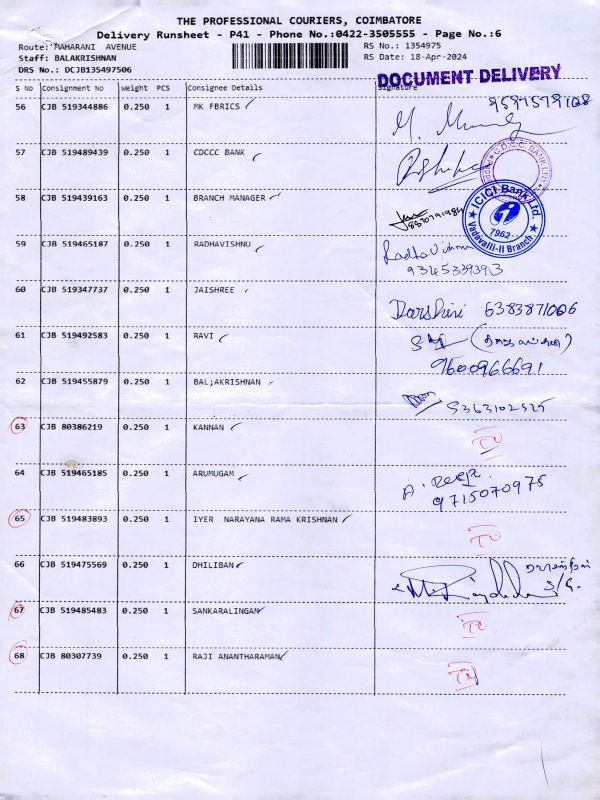 THE PROFESSIONAL COURIERS, COIMBATORE
Delivery Runsheet - P41 - Phone No.:0422-3505555 - Page No.:6
Route: MAHARANI AVENUE
RS No.: 1354975
Staff: BALAKRISHNAN
RS Date: 18-Apr-2024
DRS No.: DCJB135497506
DOCUMENT DELIVERY
S No Consignment No Weight PCS Consignee Details Signature
56 CJB 519344886 0.250 1 MK FBRICS
57 CJB 519489439 0.250 1 CDCCC BANK
C.D.C.C. BANK LTD.
58 CJB 519439163 0.250 1 BRANCH MANAGER
ICICI Bank Ltd.
7962
Vadavalli-II Branch
59 CJB 519465187 0.250 1 RADHAVISHNU Radha Vishnu
9345339393
60 CJB 519347737 0.250 1 JAISHREE Darshini 6383871006
61 CJB 519492583 0.250 1 RAVI
9600966691
62 CJB 519455879 0.250 1 BAL;AKRISHNAN 9363102525
63 CJB 80386219 0.250 1 KANNAN
64 CJB 519465185 0.250 1 ARUMUGAM
9715070975
65 CJB 519483893 0.250 1 IYER NARAYANA RAMA KRISHNAN
66 CJB 519475569 0.250 1 DHILIBAN
67 CJB 519485483 0.250 1 SANKARALINGAM
68 CJB 80307739 0.250 1 RAJI ANANTHARAMAN